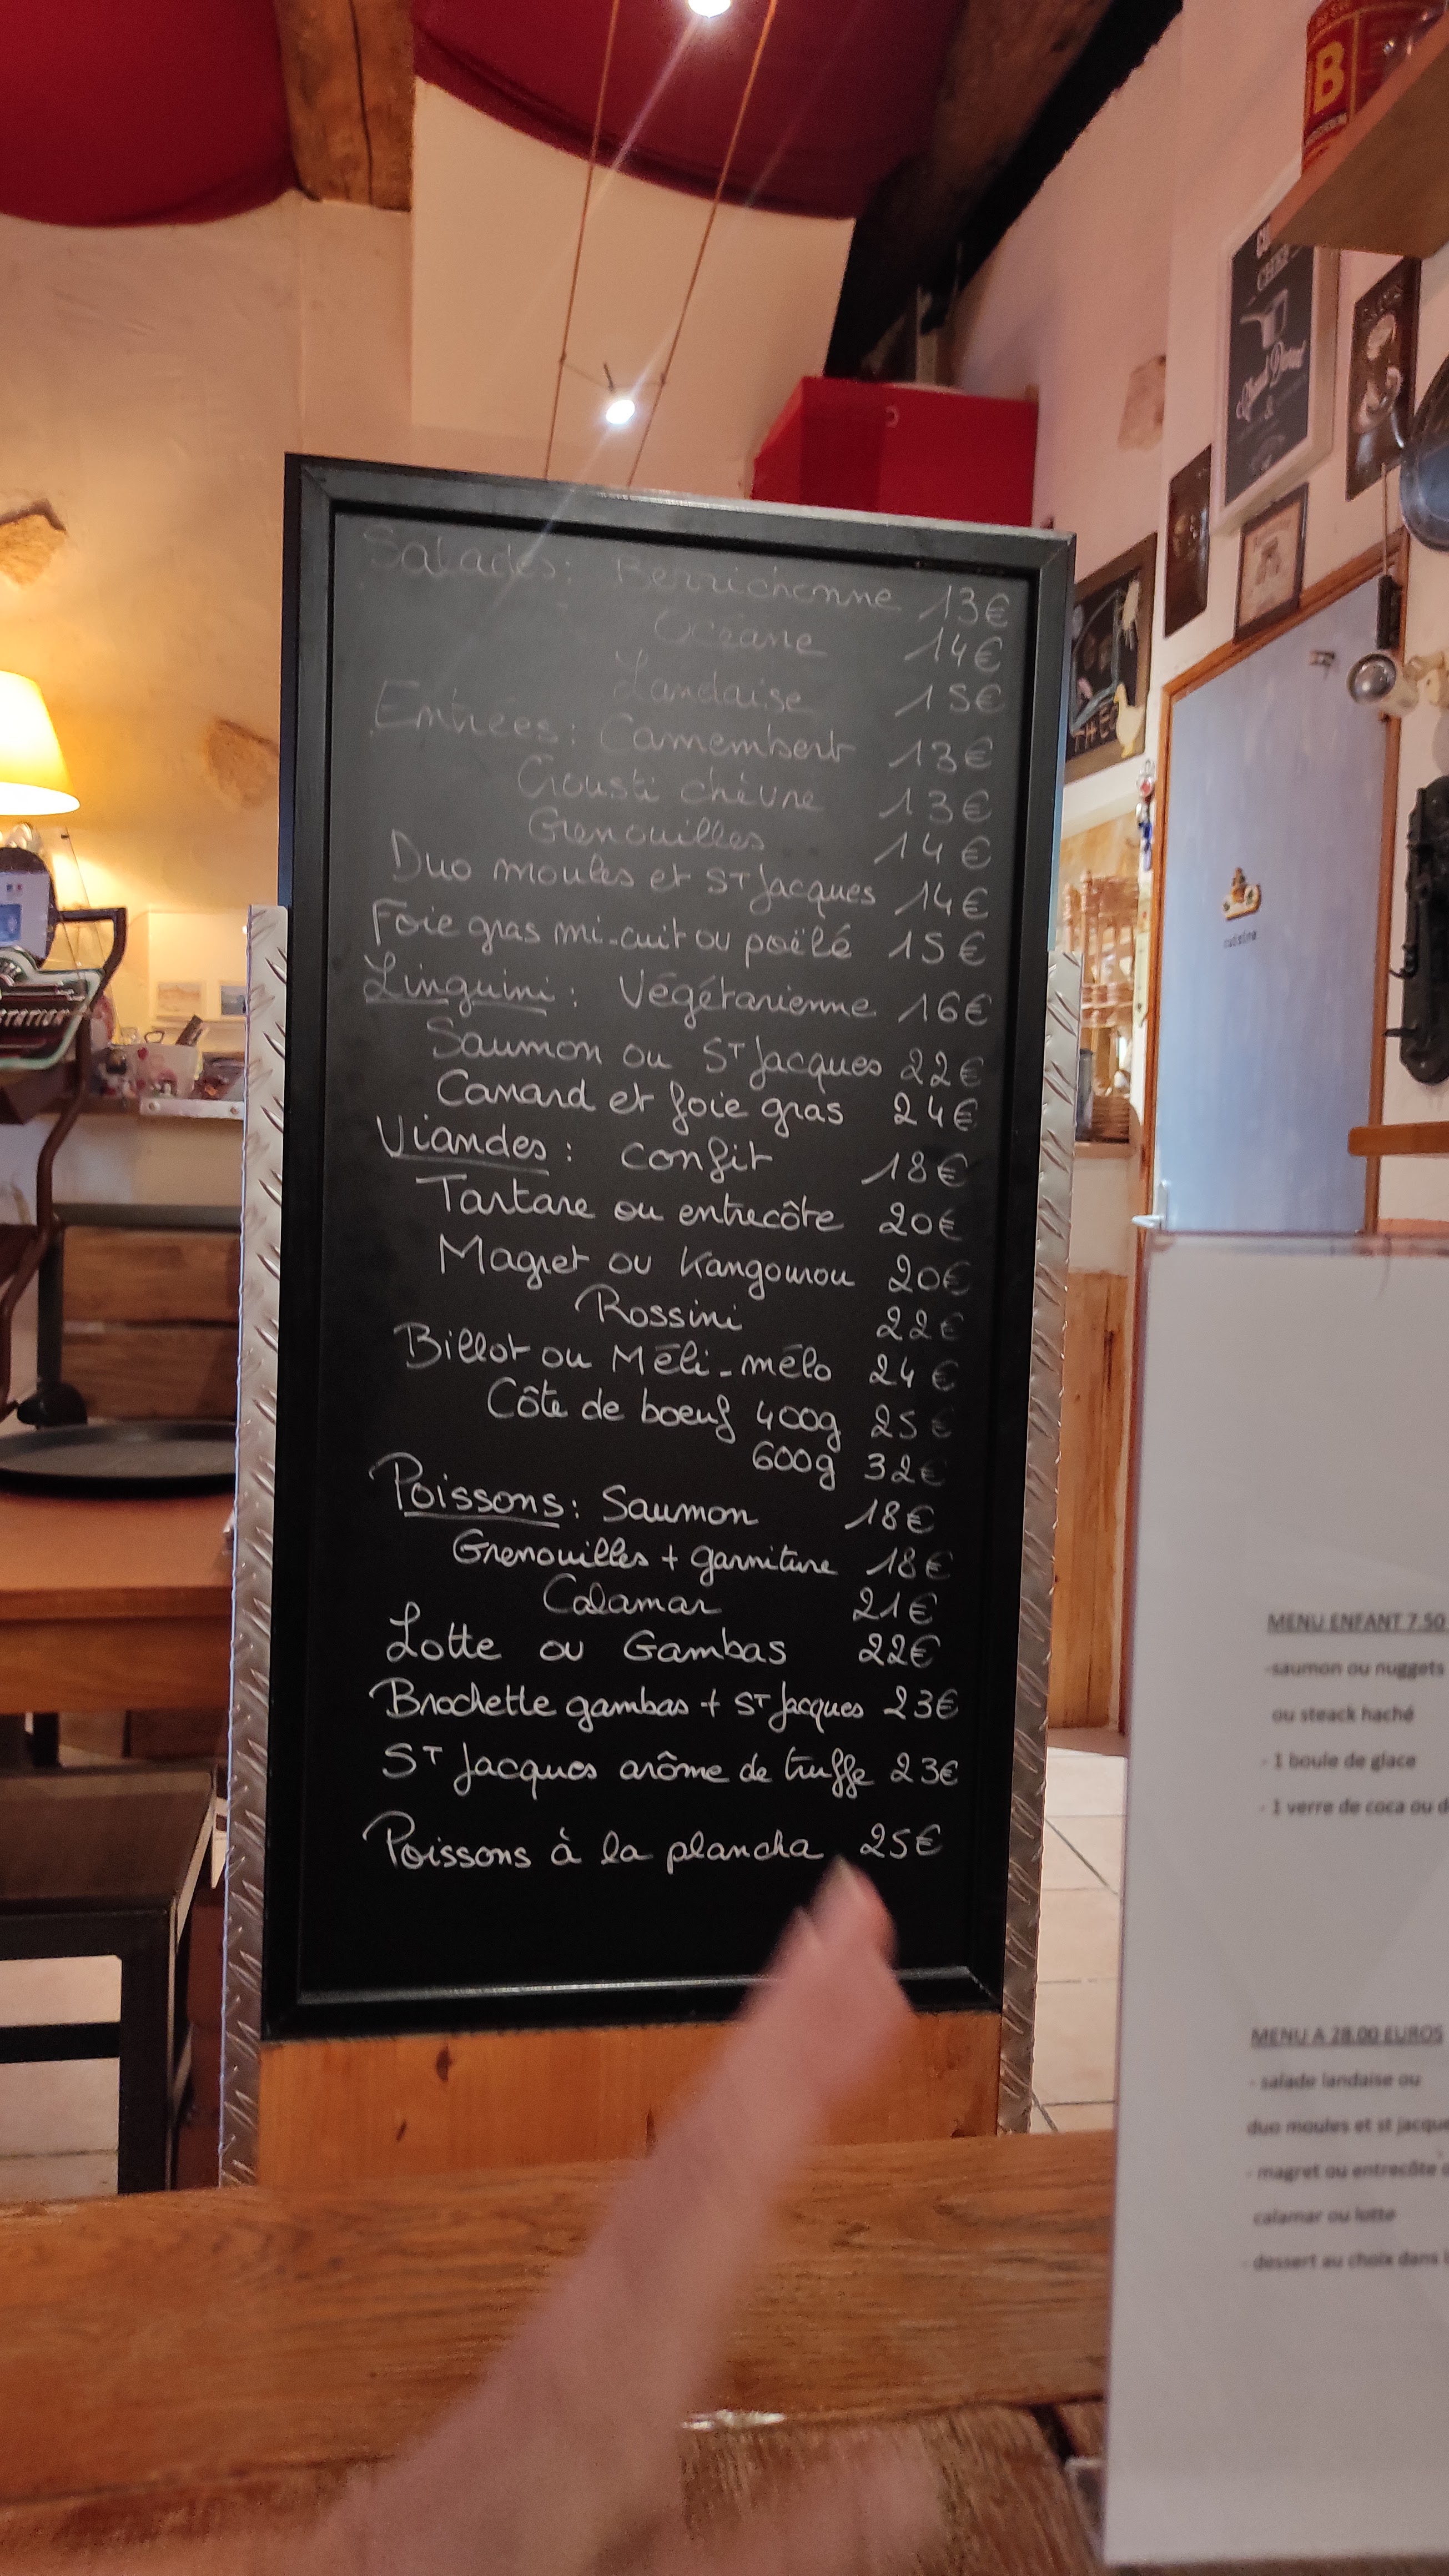 Salades: Berrichonne 13€
Océane 14€
Landaise 15€
Entrées: Camembert 13€
Crousti chèvre 13€
Grenouilles 14€
Duo moules et ST Jacques 14€
Foie gras mi-cuit ou poëlé 15€
Linguini: Végétarienne 16€
Saumon ou ST Jacques 22€
Canard et foie gras 24€
Viandes: confit 18€
Tartare ou entrecôte 20€
Magret ou Kangourou 20€
Rossini 22€
Billot ou Méli-mélo 24€
Côte de boeuf 400g 25€
600g 32€
Poissons: Saumon 18€
Grenouilles + garniture 18€
Calamar 21€
Lotte ou Gambas 22€
Brochette gambas + ST Jacques 23€
ST Jacques arôme de truffe 23€
Poissons à la plancha 25€
MENU ENFANT 7.50
-saumon ou nuggets
ou steack haché
- 1 boule de glace
- 1 verre de coca ou
MENU A 28.00 EUROS
- salade landaise ou
duo moules et st jacque
- magret ou entrecôte
calamar ou lotte
- dessert au choix dans
cuisine
B
CHEF
THÉ